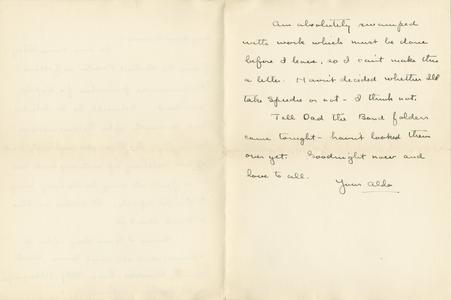 Am absolutely swamped
with work which must be done
before I leave, so I can't make this
a letter. Haven't decided whether I'll
take Spedie or not - I think not.
Tell Dad the Bond folders
came tonight - haven't looked them
over yet. Goodnight now and
love to all.
Your Aldo